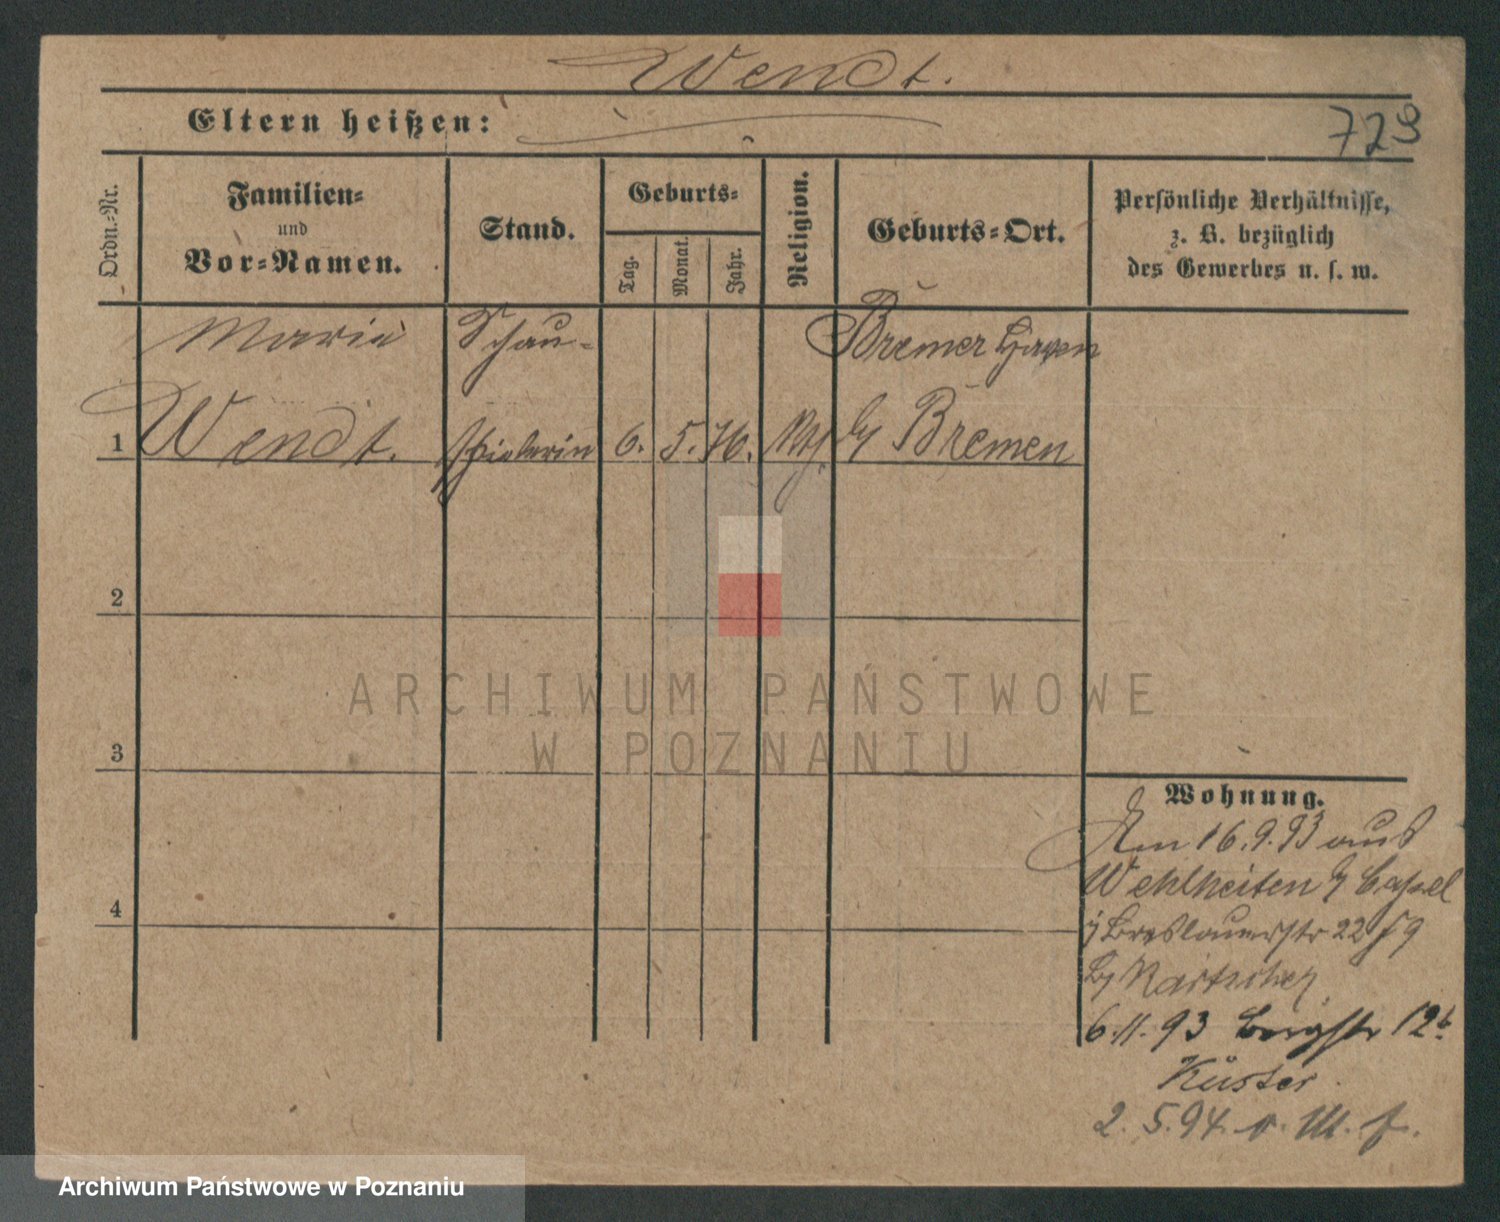 Wendt.
Eltern heißen:
729
Ordn.-Nr.
Familien-
und
Vor-Namen.
Stand.
Geburts-
Tag.
Monat.
Jahr.
Religion.
Geburts-Ort.
Persönliche Verhältnisse,
z. B. bezüglich
des Gewerbes u. s. w.
Maria Schau- Bremerhaven
1 Wendt. spielerin 6. 5. 76. b/ Bremen
2
3
4
ARCHIWUM PAŃSTWOWE
W POZNANIU
Wohnung.
Am 16.9.93 aus
Wehlheiten b/ Cassel
Breslauerstr 22
b/
6.11.93 Bergstr 12b
Küster
2.5.94.
Archiwum Państwowe w Poznaniu